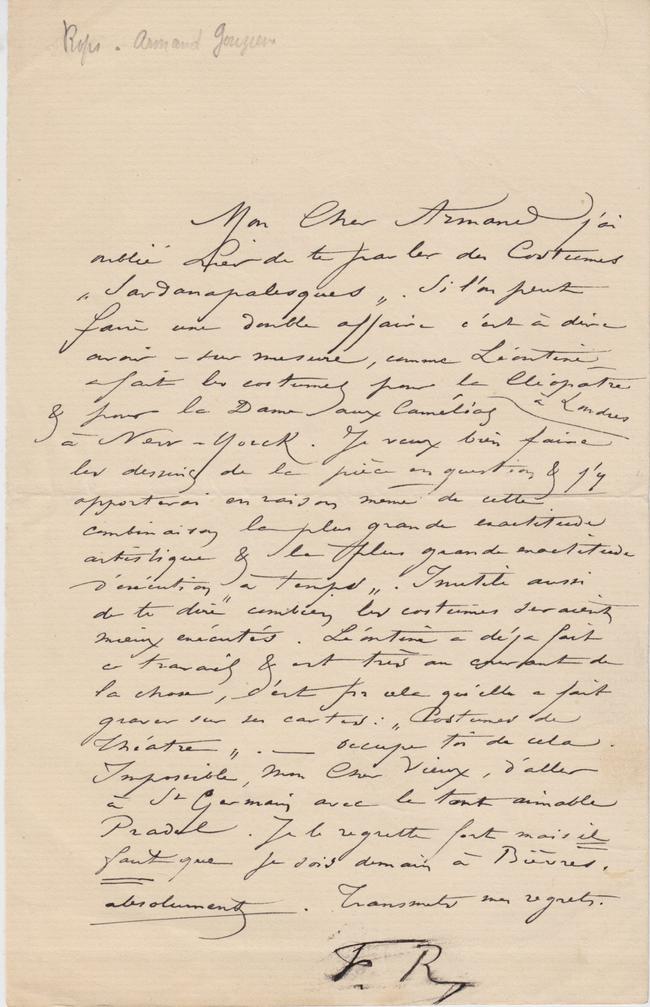 Rops. Armand Gouzien
Mon Cher Armand j'ai
oublié hier de te parler des Costumes
„ Sardanapalesques „. Si l'on peut
faire une double affaire c'est à dire
avoir – sur mesure, comme Léontine
a fait les costumes pour la Cléopatre
à Londres
& pour la Dame aux Camélias
à New-Yorck. Je veux bien faire
les dessins de la pièce en question & j'y
apporterai en raison même de cette
combinaison la plus grande exactitude
artistique & la plus grande exactitude
d'exécution „ à temps „. Inutile aussi
de te dire combien les costumes seraient
mieux exécutés. Léontine a déjà fait
ce travail & est très au courant de
la chose, c'est pr cela qu'elle a fait
graver sur ses cartes: „ Costumes de
Théatre „. — occupe toi de cela.
Impossible, mon Cher Vieux, d'aller
à St Germain avec le tout aimable
Pradel. Je le regrette fort mais il
faut que je sois demain à Bièvres.
absolument. Transmets mes regrets.
F R